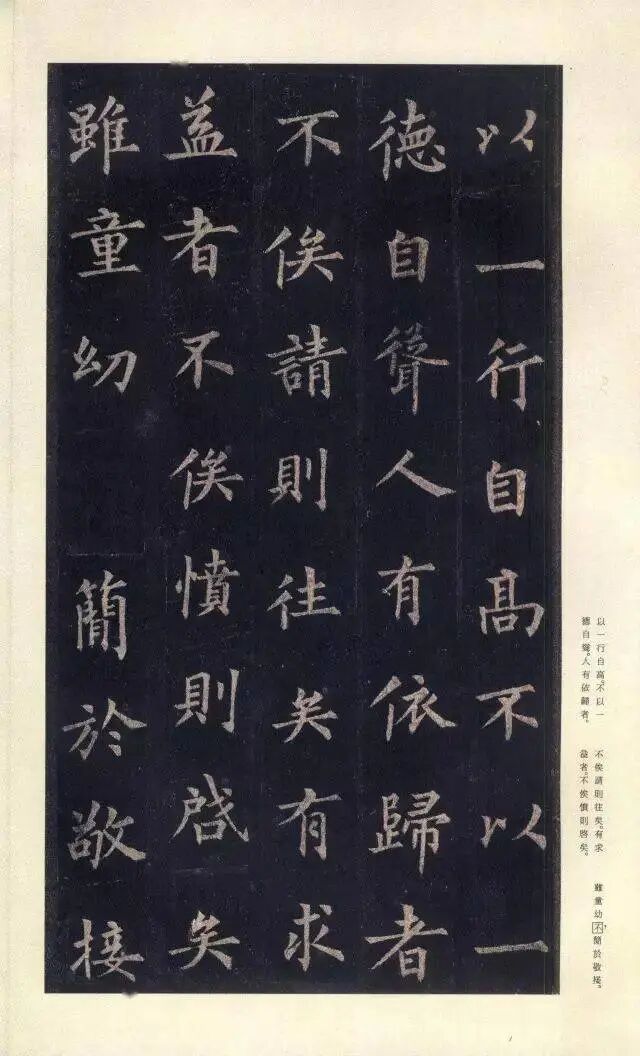 以一行自高不以一
德自聳人有依歸者
不俟請則往矣有求
益者不俟憤則啓矣
雖童幼簡於敬接
以一行自高。不以一
德自聳。人有依歸者。
不俟請則往矣。有求
益者。不俟憤則啓矣。
雖童幼，不簡於敬接。